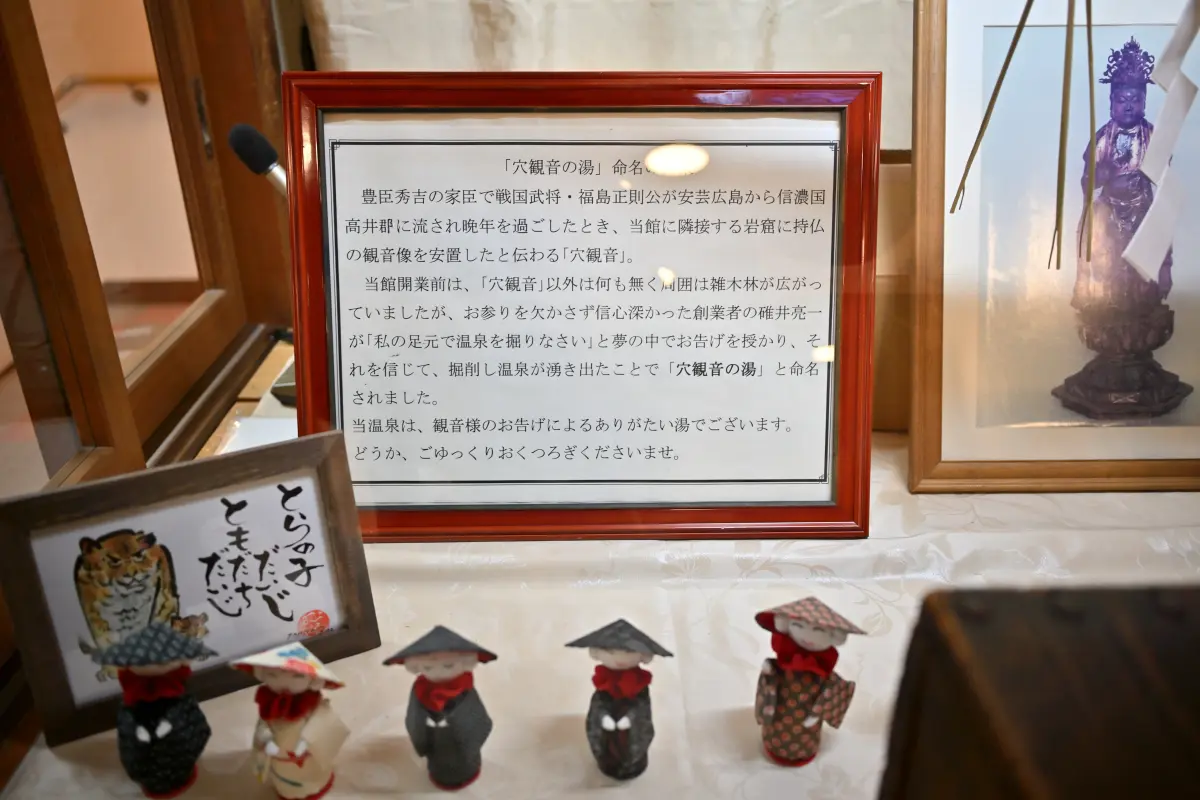 「穴観音の湯」命名
豊臣秀吉の家臣で戦国武将・福島正則公が安芸広島から信濃国
高井郡に流され晩年を過ごしたとき、当館に隣接する岩窟に持仏
の観音像を安置したと伝わる「穴観音」。
当館開業前は、「穴観音」以外は何も無く周囲は雑木林が広がっ
ていましたが、お参りを欠かさず信心深かった創業者の碓井亮一
が「私の足元で温泉を掘りなさい」と夢の中でお告げを授かり、そ
れを信じて、掘削し温泉が湧き出たことで「穴観音の湯」と命名
されました。
当温泉は、観音様のお告げによるありがたい湯でございます。
どうか、ごゆっくりおくつろぎくださいませ。
とらの子
だいじ
ともだち
だいじ